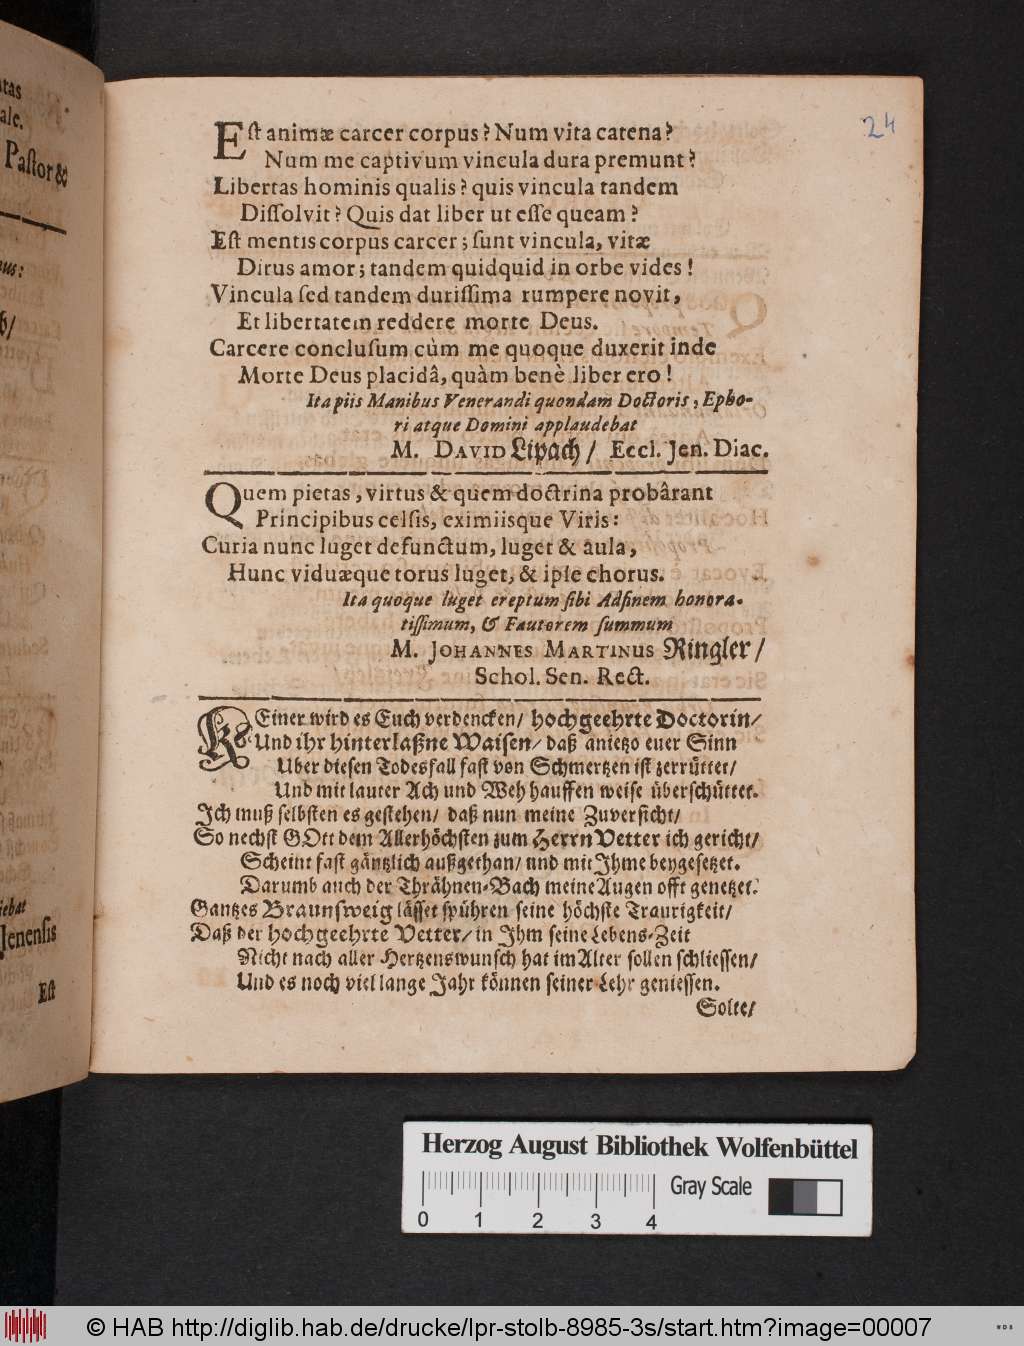 itas
ale.
Pastor &
nus:
b/
iebat
Jenensis
Est
24
Est animæ carcer corpus? Num vita catena?
Num me captivum vincula dura premunt?
Libertas hominis qualis? quis vincula tandem
Dissolvit? Quis dat liber ut esse queam?
Est mentis corpus carcer; sunt vincula, vitæ
Dirus amor; tandem quidquid in orbe vides!
Vincula sed tandem durissima rumpere novit,
Et libertatem reddere morte Deus.
Carcere conclusum cùm me quoque duxerit inde
Morte Deus placidâ, quàm benè liber ero!
Ita piis Manibus Venerandi quondam Doctoris, Epho-
ri atque Domini applaudebat
M. DAVID Lipach/ Eccl. Jen. Diac.
Quem pietas, virtus & quem doctrina probârant
Principibus celsis, eximiisque Viris:
Curia nunc luget defunctum, luget & aula,
Hunc viduæque torus luget, & ipse chorus.
Ita quoque luget ereptum sibi Adfinem honora-
tissimum, & Fautorem summum
M. JOHANNES MARTINUS Ringler/
Schol. Sen. Rect.
KEiner wird es Euch verdencken/ hochgeehrte Doctorin/
Und ihr hinterlaßne Waisen/ daß anietzo euer Sinn
Uber diesen Todesfall fast von Schmertzen ist zerrüttet/
Und mit lauter Ach und Weh hauffen weise überschüttet.
Ich muß selbsten es gestehen/ daß nun meine Zuversicht/
So nechst GOtt dem Allerhöchsten zum Herrn Vetter ich gericht/
Scheint fast gäntzlich außgethan/ und mit Ihme beygesetzet.
Darumb auch der Thrähnen-Bach meine Augen offt genetzet.
Gantzes Braunsweig lässet spühren seine höchste Traurigkeit/
Daß der hochgeehrte Vetter/ in Ihm seine Lebens-Zeit
Nicht nach aller Hertzenswunsch hat im Alter sollen schliessen/
Und es noch viel lange Jahr können seiner Lehr geniessen.
Solte/
Herzog August Bibliothek Wolfenbüttel
Gray Scale
0 1 2 3 4
© HAB http://diglib.hab.de/drucke/lpr-stolb-8985-3s/start.htm?image=00007